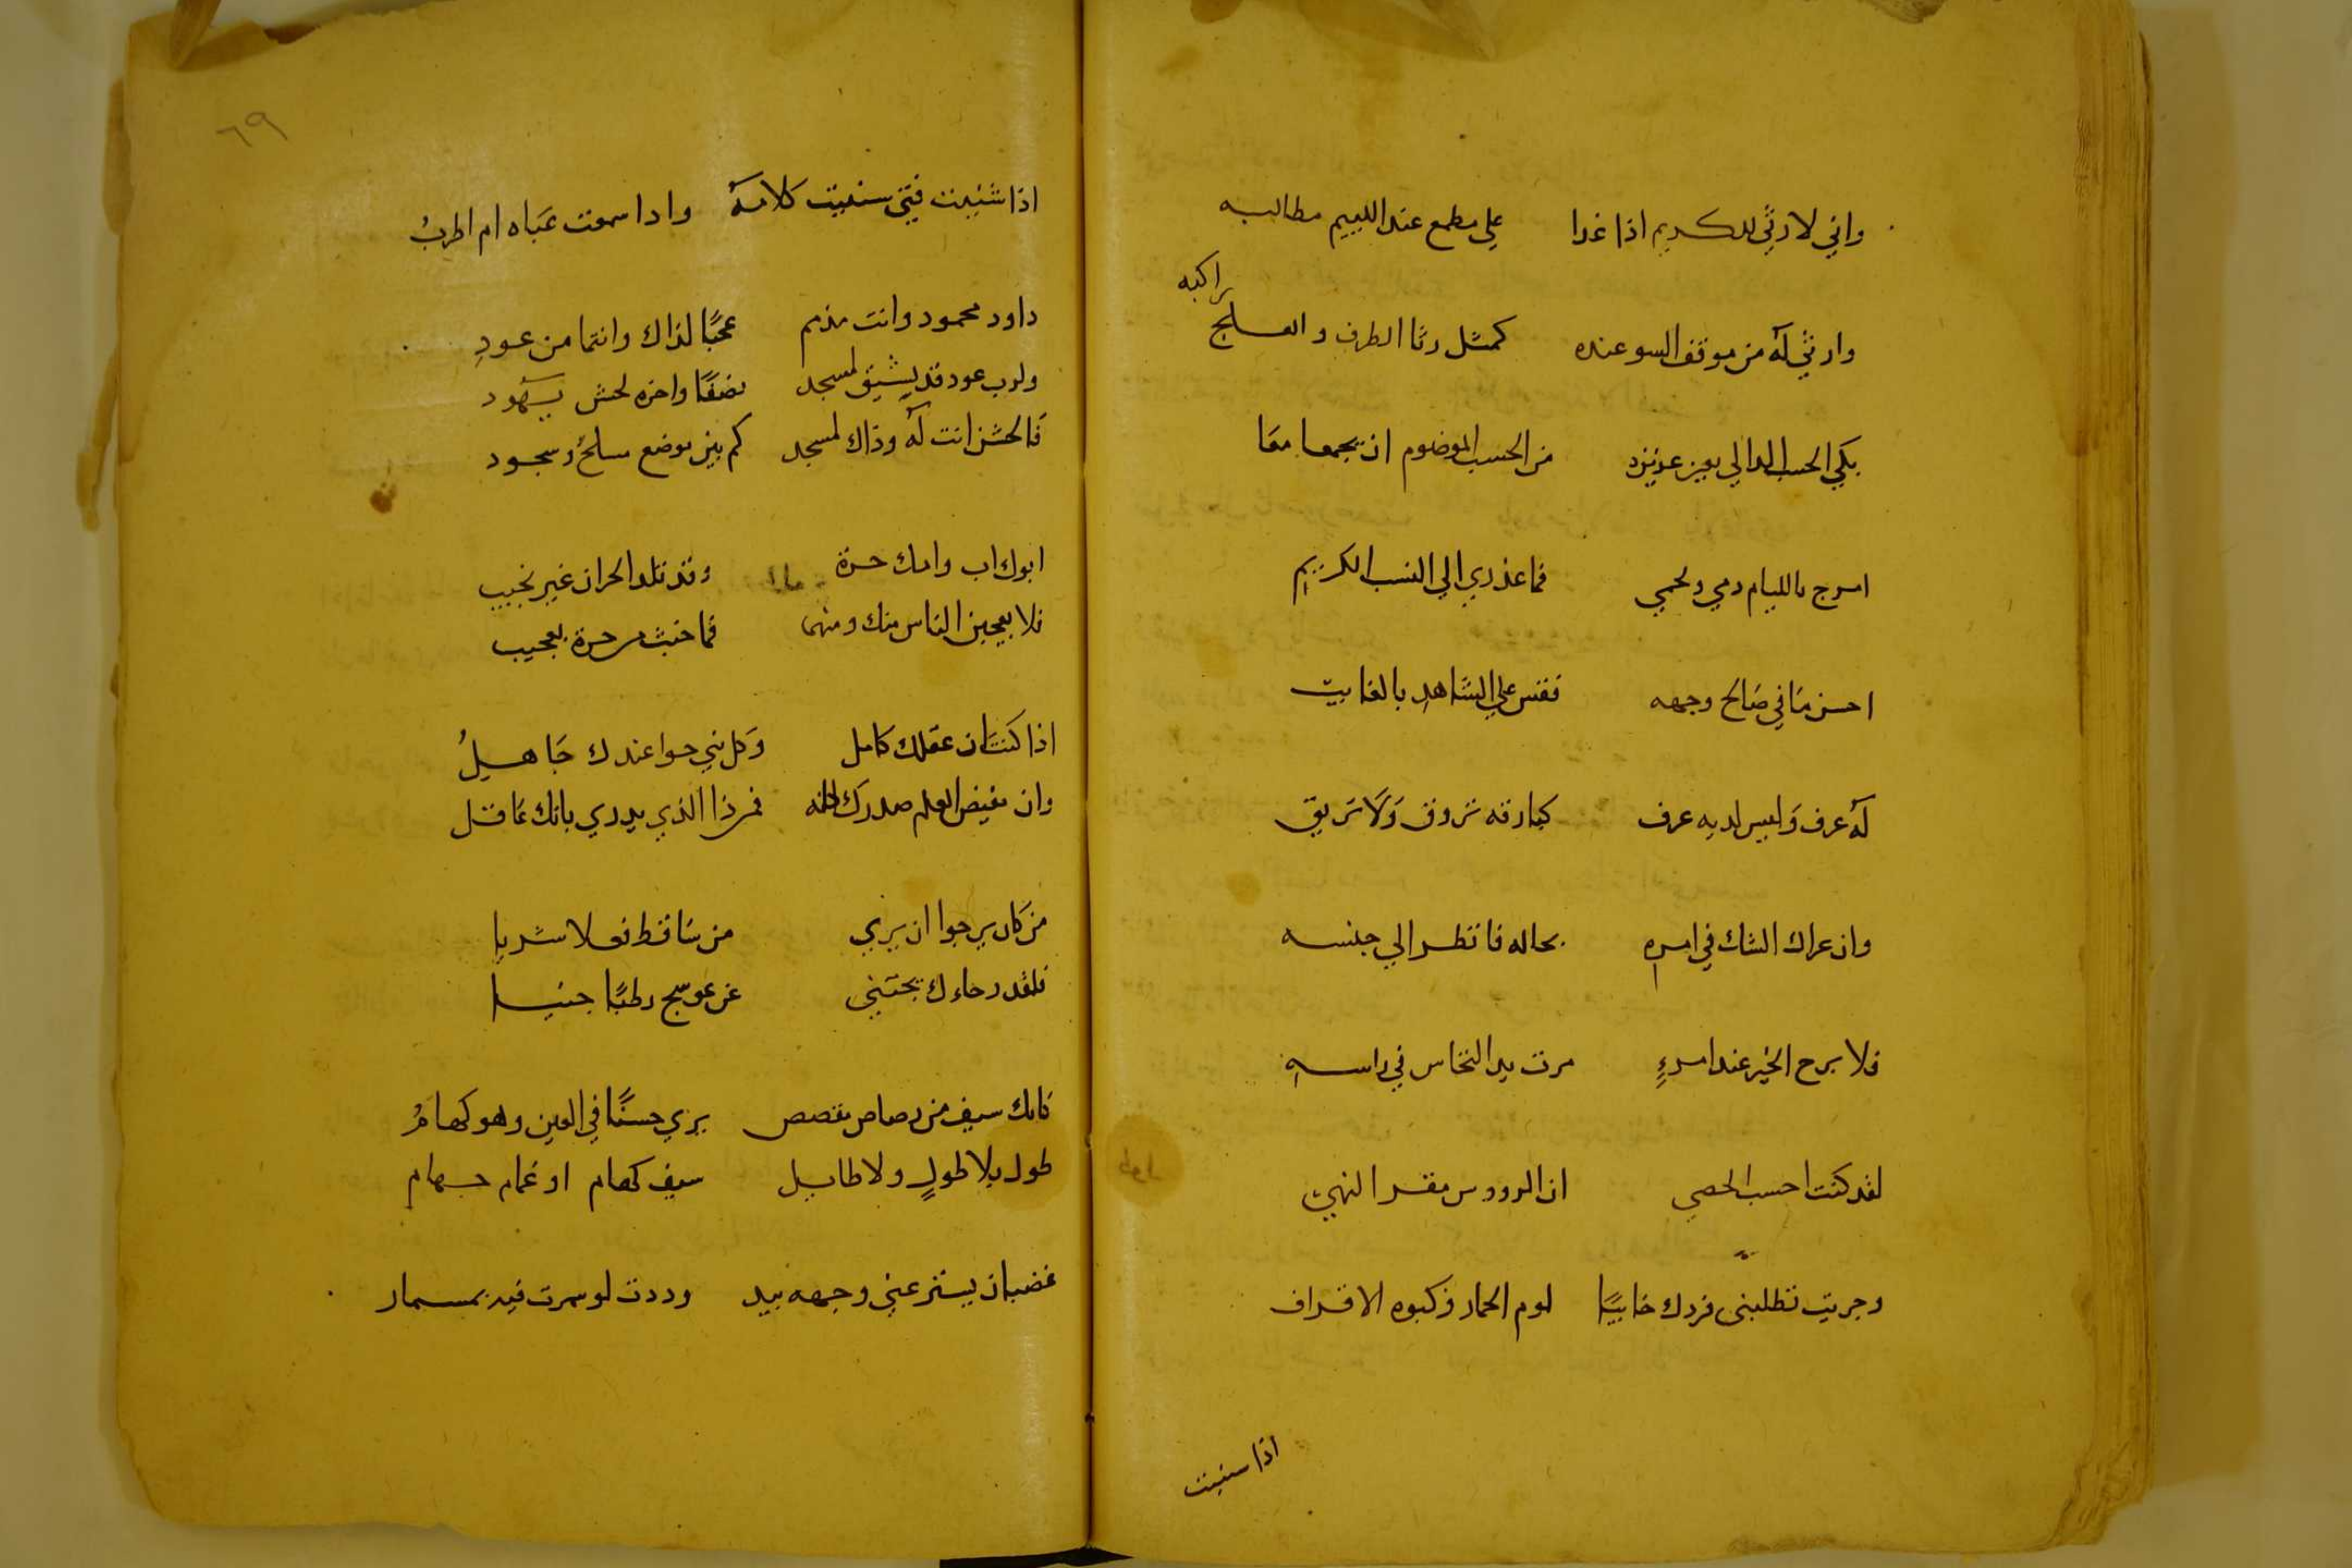 واني لارثي للكريم اذا غدا على مطمع عند اللييم مطالبه
وارثي له من موقف السو عنده كمثل رثا الطرف والعلج راكبه
بكي الحسب الدالي بعين عزيزة من الحسب الموضوم ان يجمعا معا
امرج بالليام دمي ولحمي فما عذري الي النسب الكريم
احسن ما في صالح وجهه فقس علي الشاهد بالغايب
له عرف وليس لديه عرف كبارقه تروق ولا تريق
وان عراك الشك في امره بحاله فانظر الي جنسه
فلا برح الخير عند امرءٍ مرت يد النخاس في راسه
لقد كنت احسب الخصي ان الرووس مقر النهي
وجريت تطلبني فردك خايبًا لوم الحمار وكبوه الاقراف
اذا سنيت
٦٩
اذا شئيت فتي سنيت كلامه واذا سمعت غناه لم اطربُ
داود محمود وانت مذمم عجبًا لذاك وانتما من عودِ
ولرب عود قد يشيق لمسجد نصفًا واخره لحش يهود
فالحش انت له وذاك لمسجد كم بين موضع مسلحٍ وسجود
ابوك اب وامك حرة وقد تلد الحران غير نجيب
فلا يعجبن الناس منك ومنهما فما خبث من حرة بعجيب
اذا كنت ان عقلك كامل وكل بني حوا عندك جاهلُ
وان مفيض العلم صدرك كله فمن ذا الذي يدري بانك عاقل
من كان يرجوا ان يري من ساقط فعلا سريا
فلقد رجاءك يجتني من عوسج رطبًا جنيا
كانك سيف من رصاص مفصص يري حسنًا في العين وهو كهامُ
طول بلا طولٍ ولا طايل سيف كهام او غمام جهام
غضبان يستر عني وجهه بيد وددت لو سمرت فيه بمسمار